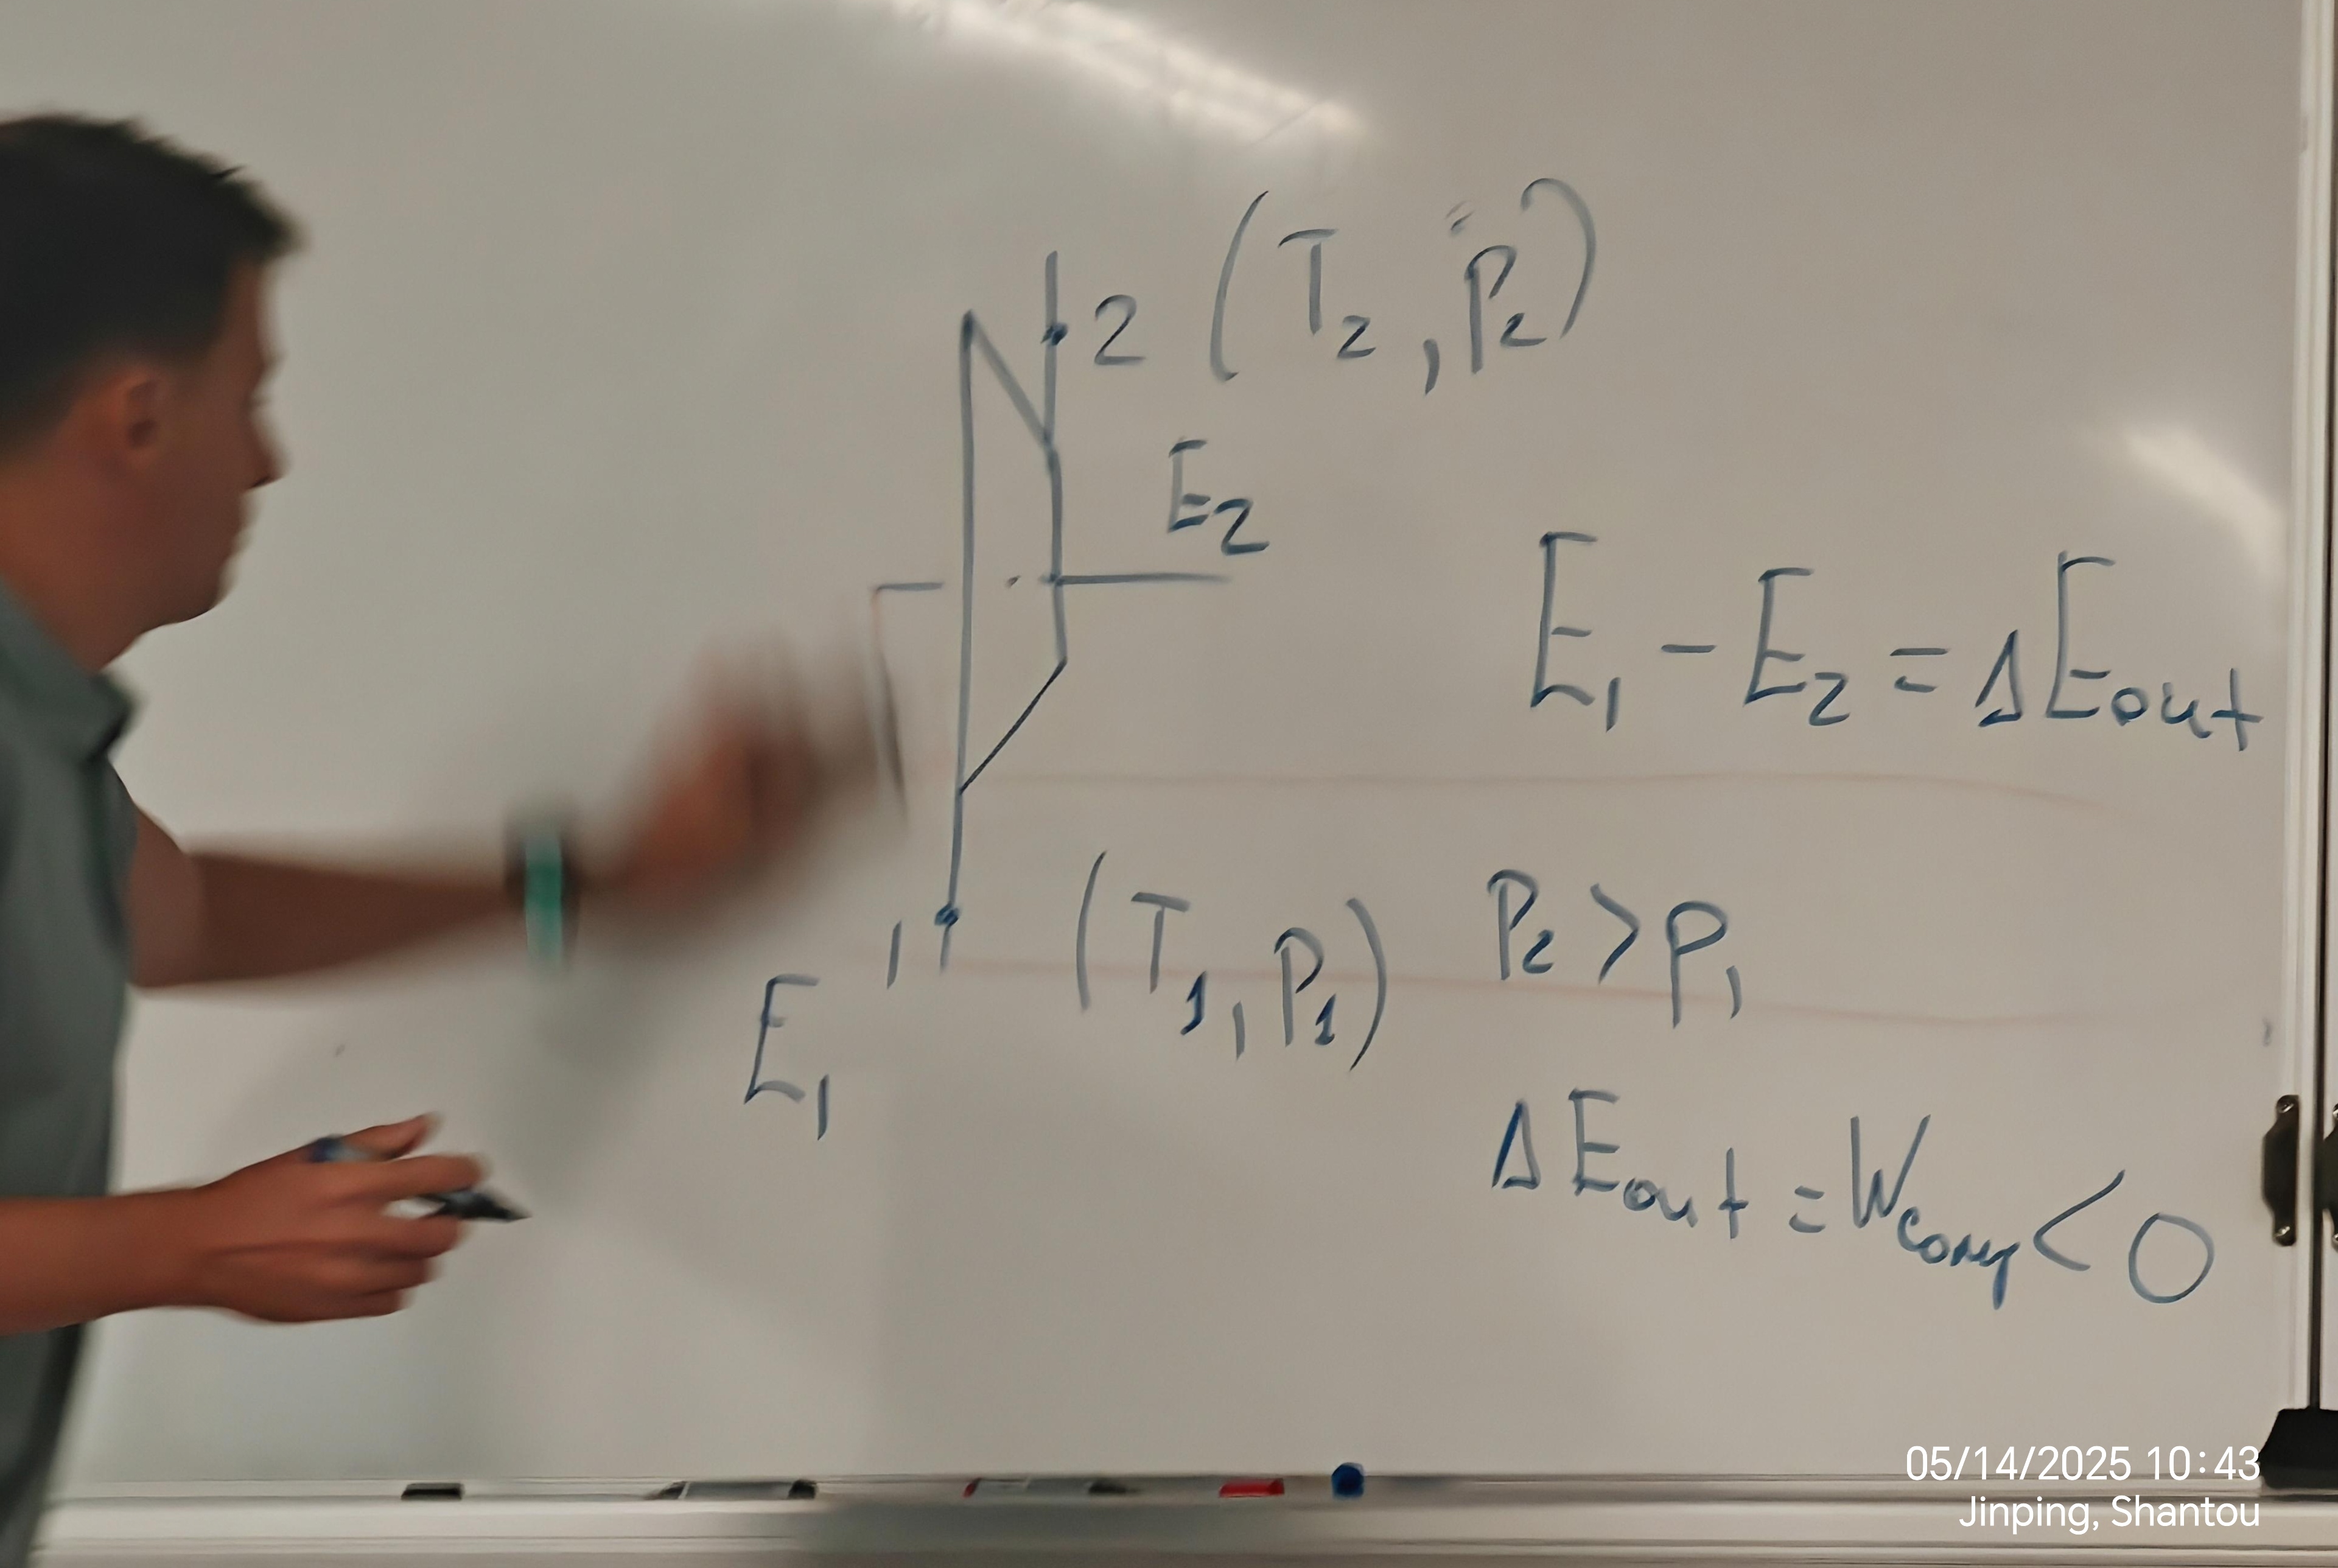 2 (T₂, P₂)
E₂
E₁ - E₂ = ΔEout
1 (T₁, P₁) P₂ > P₁
E₁
ΔEout = Wcomp < 0
05/14/2025 10:43
Jinping, Shantou